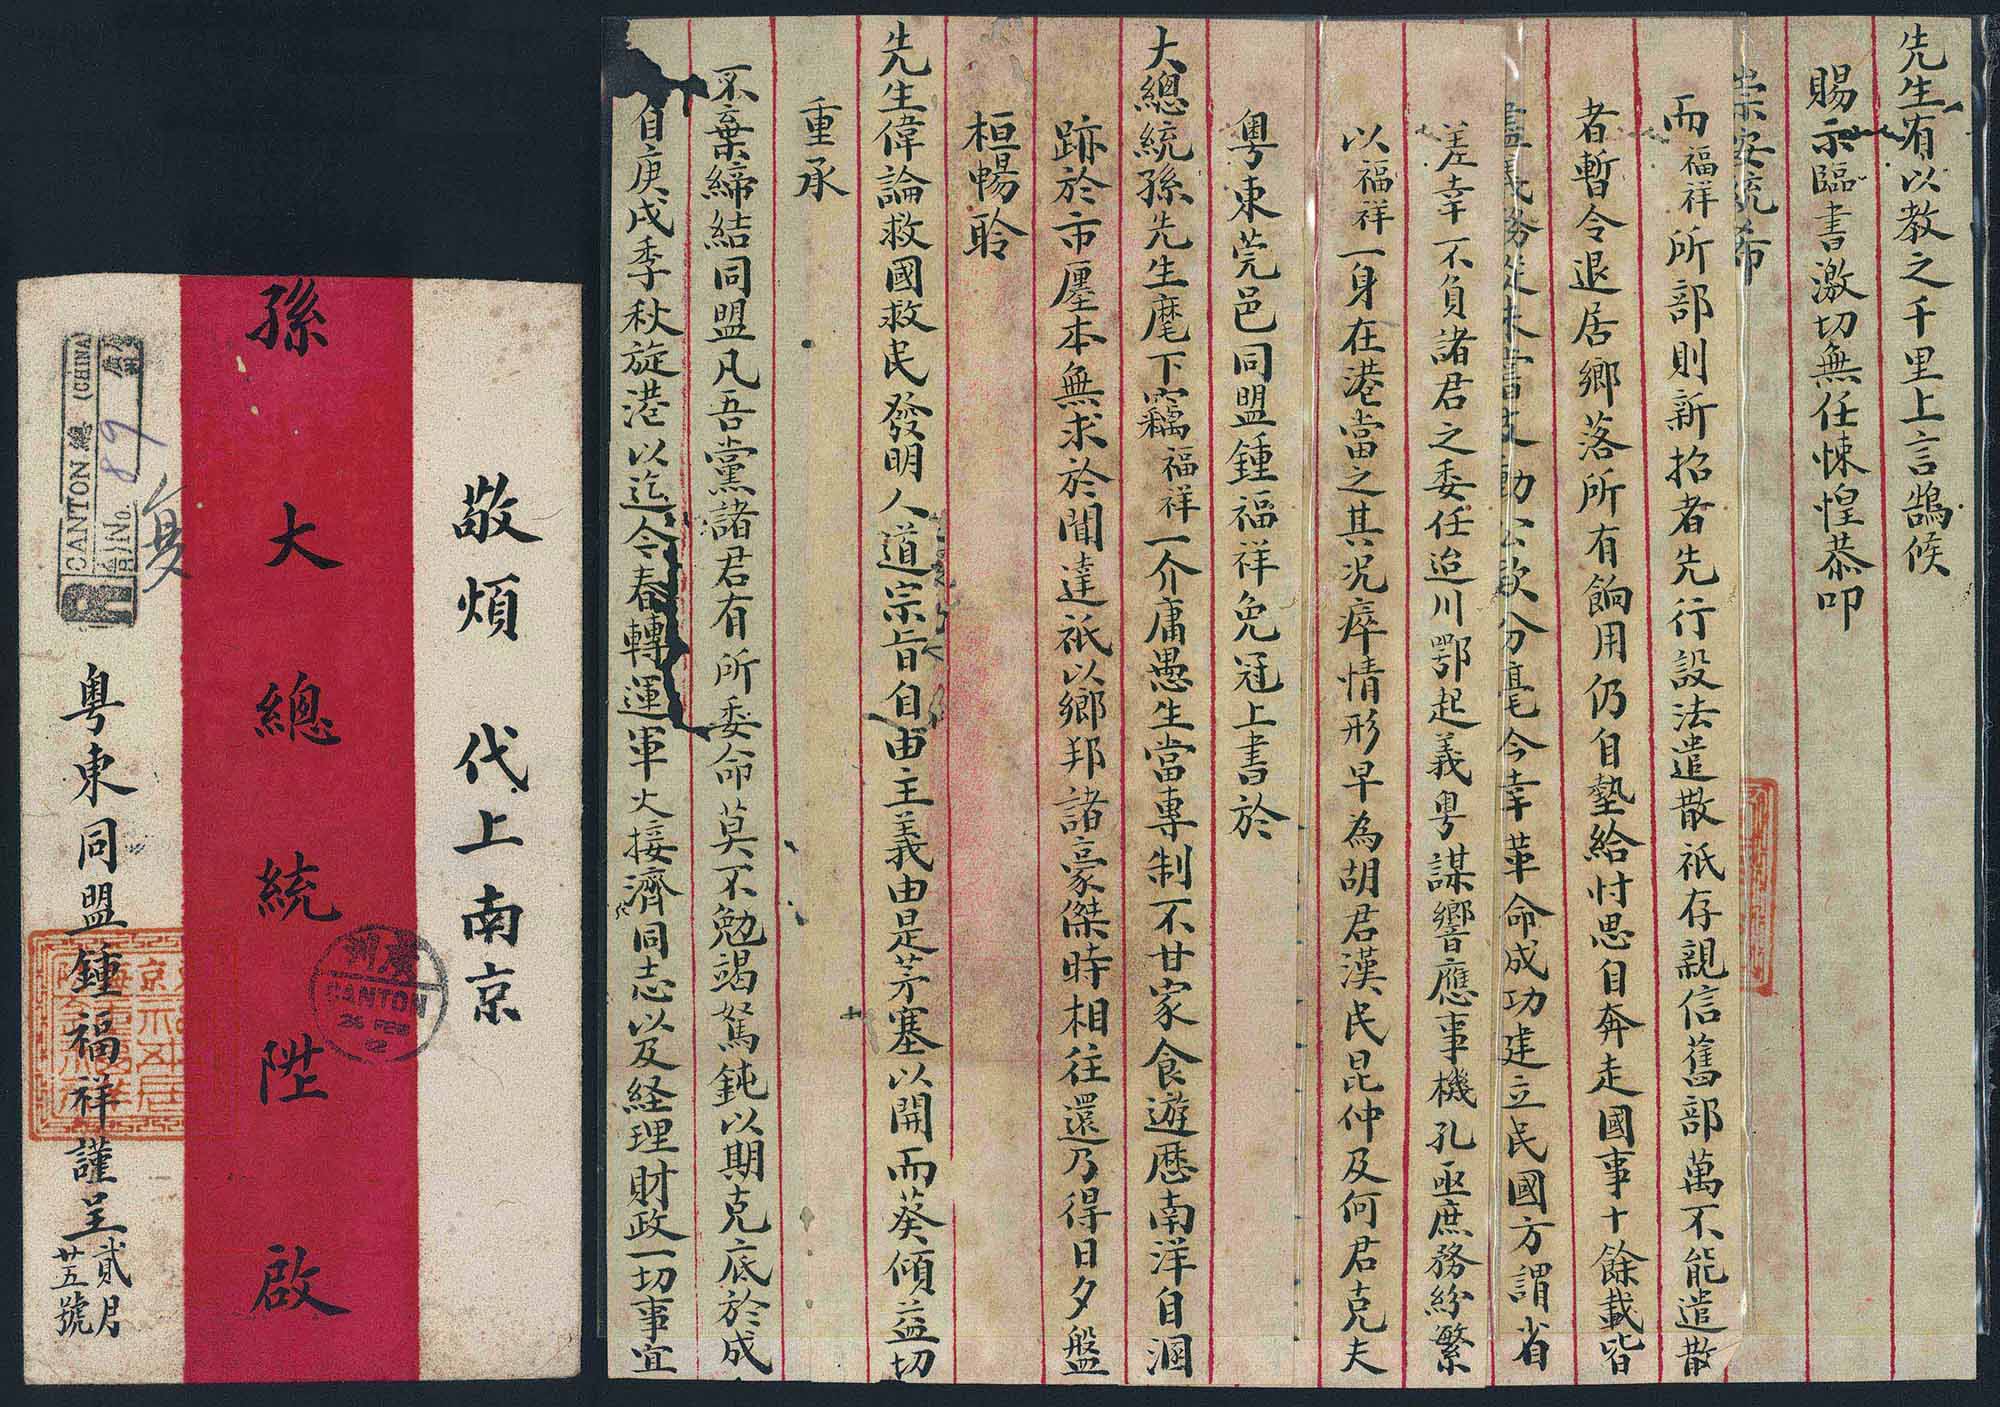 先生有以教之千里上言鵠候
賜示臨書激切無任悚惶恭叩
崇安統希
而福祥所部則新招者先行設法遣散祇存親信舊部萬不能遣散
者暫令退居鄉落所有餉用仍自墊給忖思自奔走國事十餘載皆
盡義務從未嘗支動公款分毫今幸革命成功建立民國方謂省
差幸不負諸君之委任迨川鄂起義粵謀響應事機孔亟庶務紛繁
以福祥一身在港當之其況瘁情形早為胡君漢民昆仲及何君克夫
粵東莞邑同盟鍾福祥免冠上書於
大總統孫先生麾下竊福祥一介庸愚生當專制不甘家食遊歷南洋自溷
跡於市廛本無求於聞達祇以鄉邦諸豪傑時相往還乃得日夕盤
桓暢聆
先生偉論救國救民發明人道宗旨自由主義由是茅塞以開而葵傾益切
重承
不棄締結同盟凡吾黨諸君有所委命莫不勉竭駑鈍以期克底於成
自庚戌季秋旋港以迄今春轉運軍火接濟同志以及経理財政一切事宜
敬煩 代上南京
孫大總統陞啟
粵東同盟鍾福祥謹呈
貳月
廿五號
CANTON 總 (CHINA)
R No. 89
CANTON
26 FEB
12